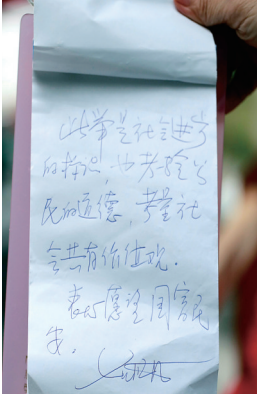 此举是社会进步
的标识,也考验公
民的道德,考量社
会共有价值观。
表心愿望国富民
安。